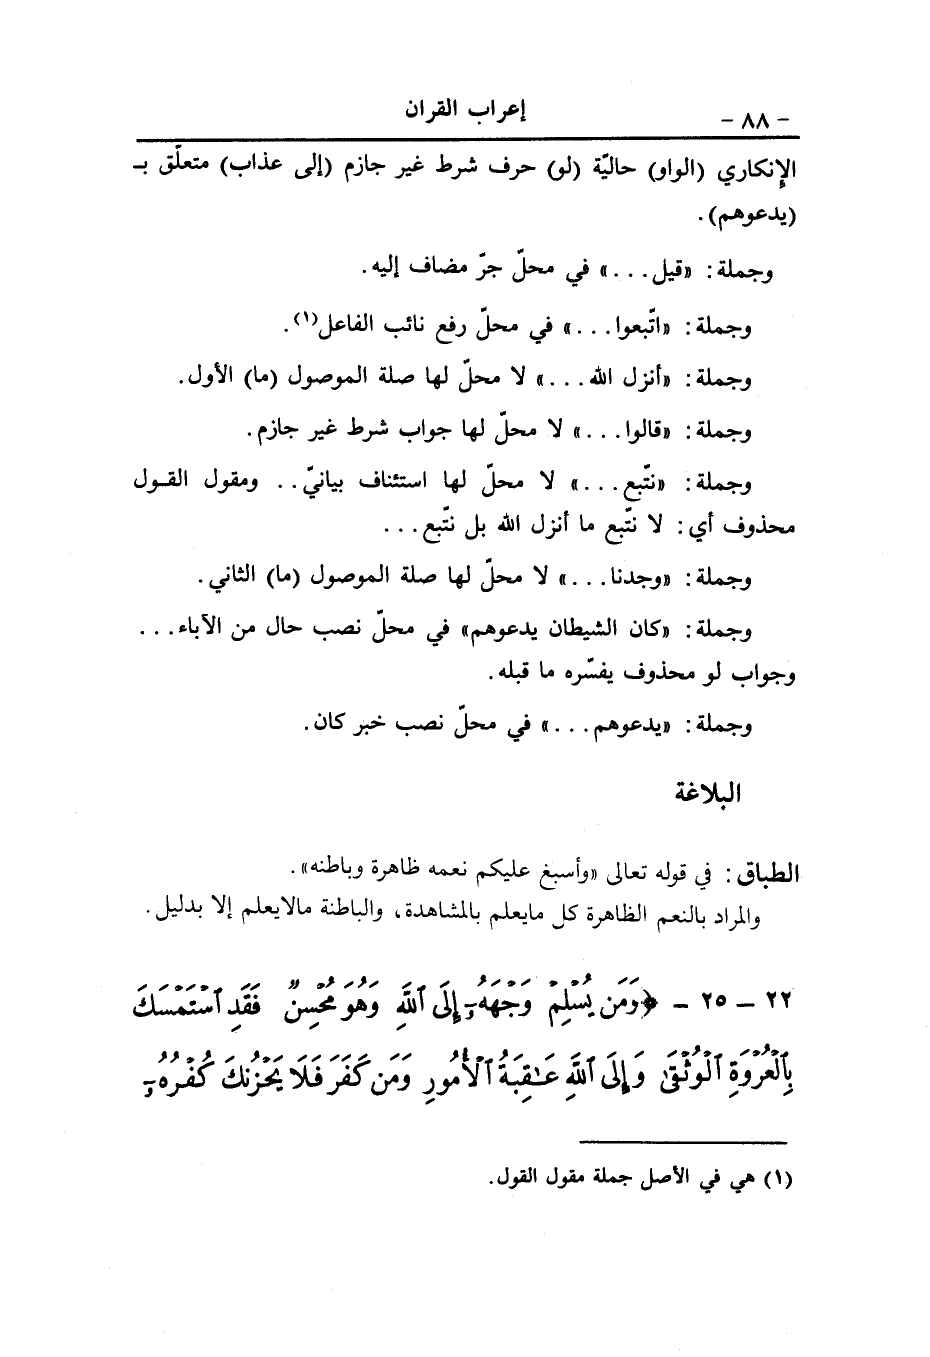 - ٨٨ -
إعراب القران
الإِنكاري (الواو) حاليّة (لو) حرف شرط غير جازم (إلى عذاب) متعلّق بـ
(يدعوهم).
وجملة: «قيل...» في محلّ جرّ مضاف إليه.
وجملة: «اتّبعوا...» في محلّ رفع نائب الفاعل(١).
وجملة: «أنزل الله...» لا محلّ لها صلة الموصول (ما) الأول.
وجملة: «قالوا...» لا محلّ لها جواب شرط غير جازم.
وجملة: «نتّبع...» لا محلّ لها استئناف بيانيّ.. ومقول القـول
محذوف أي: لا نتّبع ما أنزل الله بل نتّبع...
وجملة: «وجدنا...» لا محلّ لها صلة الموصول (ما) الثاني.
وجملة: «كان الشيطان يدعوهم» في محلّ نصب حال من الآباء...
وجواب لو محذوف يفسّره ما قبله.
وجملة: «يدعوهم...» في محلّ نصب خبر كان.
البلاغة
الطباق: في قوله تعالى «وأسبغ عليكم نعمه ظاهرة وباطنه».
والمراد بالنعم الظاهرة كل مايعلم بالمشاهدة، والباطنة مالايعلم إلا بدليل.
٢٢ - ٢٥ - ﴿وَمَن يُسْلِمْ وَجْهَهُۥٓ إِلَى ٱللَّهِ وَهُوَ مُحْسِنٌ فَقَدِ ٱسْتَمْسَكَ
بِٱلْعُرْوَةِ ٱلْوُثْقَىٰ وَإِلَى ٱللَّهِ عَـٰقِبَةُ ٱلْأُمُورِ وَمَن كَفَرَ فَلَا يَحْزُنكَ كُفْرُهُۥٓ
(١) هي في الأصل جملة مقول القول.